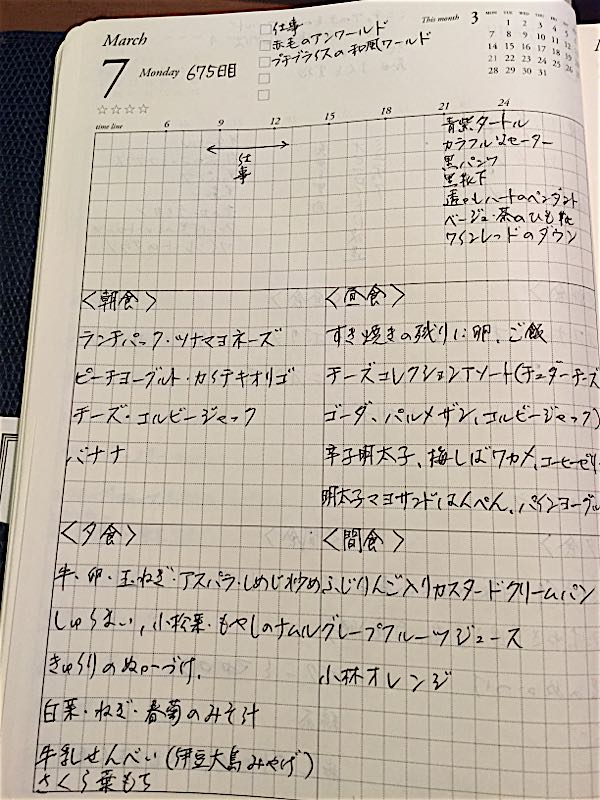 March
7 Monday 675日目
仕事
赤毛のアンワールド
プチブライスの和風ワールド
This month 3
MON TUE WED THU FRI SAT SUN
1 2 3 4 5 6
7 8 9 10 11 12 13
14 15 16 17 18 19 20
21 22 23 24 25 26
28 29 30 31
time line 6 9 12 15 18 21 24
仕事
青紫タートル
カラフルなセーター
黒パンツ
黒靴下
透かしハートのペンダント
ベージュ・茶のひも靴
ワインレッドのダウン
<朝食>
ランチパック・ツナマヨネーズ
ピーチヨーグルト・カイテキオリゴ
チーズ・コルビージャック
バナナ
<昼食>
すき焼きの残りに卵、ご飯
チーズコレクションアソート(チェダーチーズ
ゴーダ、パルメザン、コルビージャック)
辛子明太子、梅しばワカメ、コーヒーゼリ
明太子マヨサンドはんぺん、パインヨーグル
<夕食>
牛・卵・玉ねぎ・アスパラ・しめじ炒め
しゅうまい、小松菜・もやしのナムル
きゅうりのぬかづけ、
白菜・ねぎ・春菊のみそ汁
牛乳せんべい(伊豆大島みやげ)
さくら葉もち
<間食>
ふじりんご入りカスタードクリームパン
グレープフルーツジュース
小林オレンジ